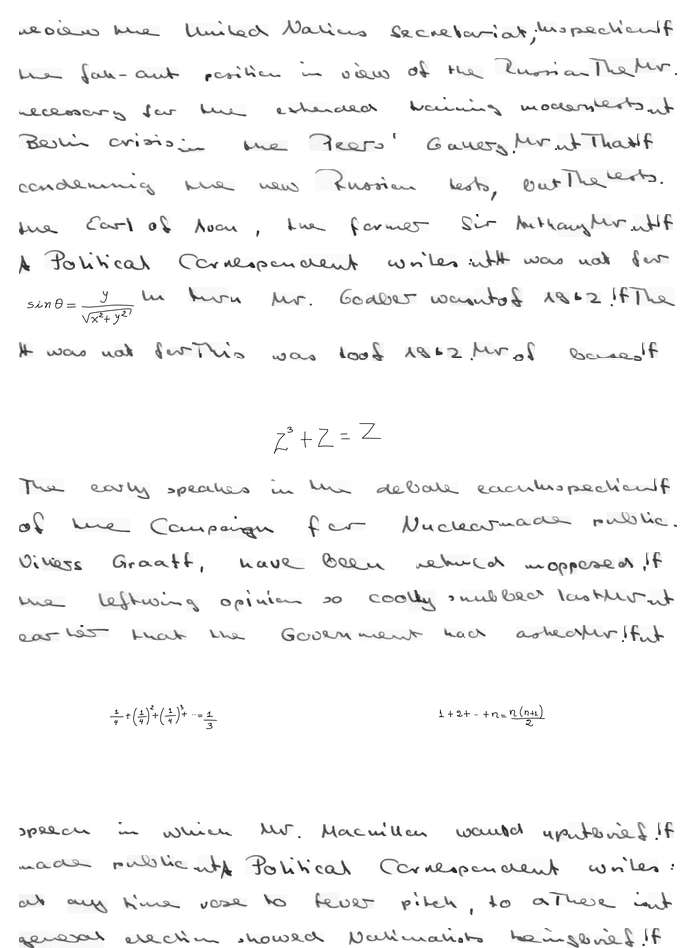 review the United Nations Secretariat; Inspection If
the fall-out position in view of the Russian The Mr.
necessary for the extended training modern tests ut
Berlin crisis in the Peers' Gallery. Mr. ut That If
condemning the new Russian tests, but The tests.
the Earl of Avon, the former Sir Anthony Mr. ut If
A Political Correspondent writes: ut It was not for
sin θ = y/√(x²+y²) In turn Mr. Godber want of 1962. If The
It was not for This was too of 1962. Mr. of bases If
z³ + z = z
The early speakes in the debate each Inspection If
of the Campaign for Nuclear made public.
Villiers Graaff, have been returned unopposed. If
the leftwing opinion so coolly snubbed last Mr. ut
earlier that the Government had asked Mr. If ut
1/4 + (1/4)² + (1/4)³ + ··· = 1/3 1+2+ ·· +n = n(n+1)/2
speech in which Mr. Macmillan would ut brief. If
made public ut A Political Correspondent writes:
at any time rose to fever pitch, to a There ut
general election showed Nationalists being brief. If